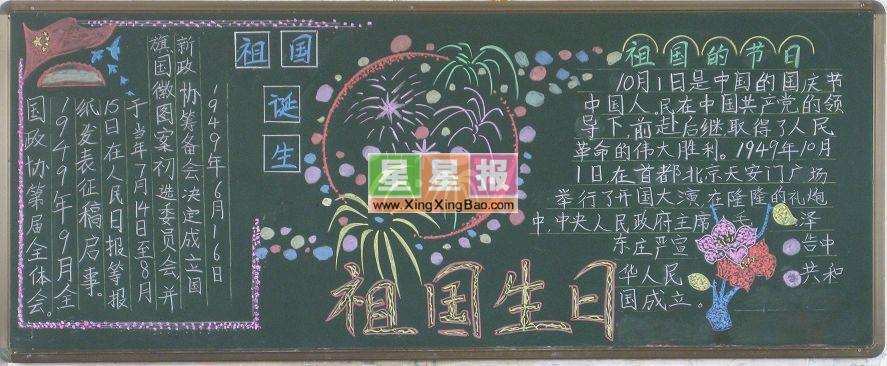 祖国
诞
生
1949年6月16日
新政协筹备会决定成立国
旗国徽图案初选委员会,并
于当年7月14日至8月
15日在人民日报等报
纸发表征稿启事。
1949年9月全
国政协第届全体会。
星星报
www.XingXingBao.com
祖国生日
祖国的节日
10月1日是中国的国庆节
中国人民在中国共产党的领
导下,前赴后继取得了人民
革命的伟大胜利。1949年10月
1日在首都北京天安门广场
举行了开国大演,在隆隆的礼炮
中,中央人民政府主席 毛 泽
东庄严宣 告中
华人民 共和
国成立。